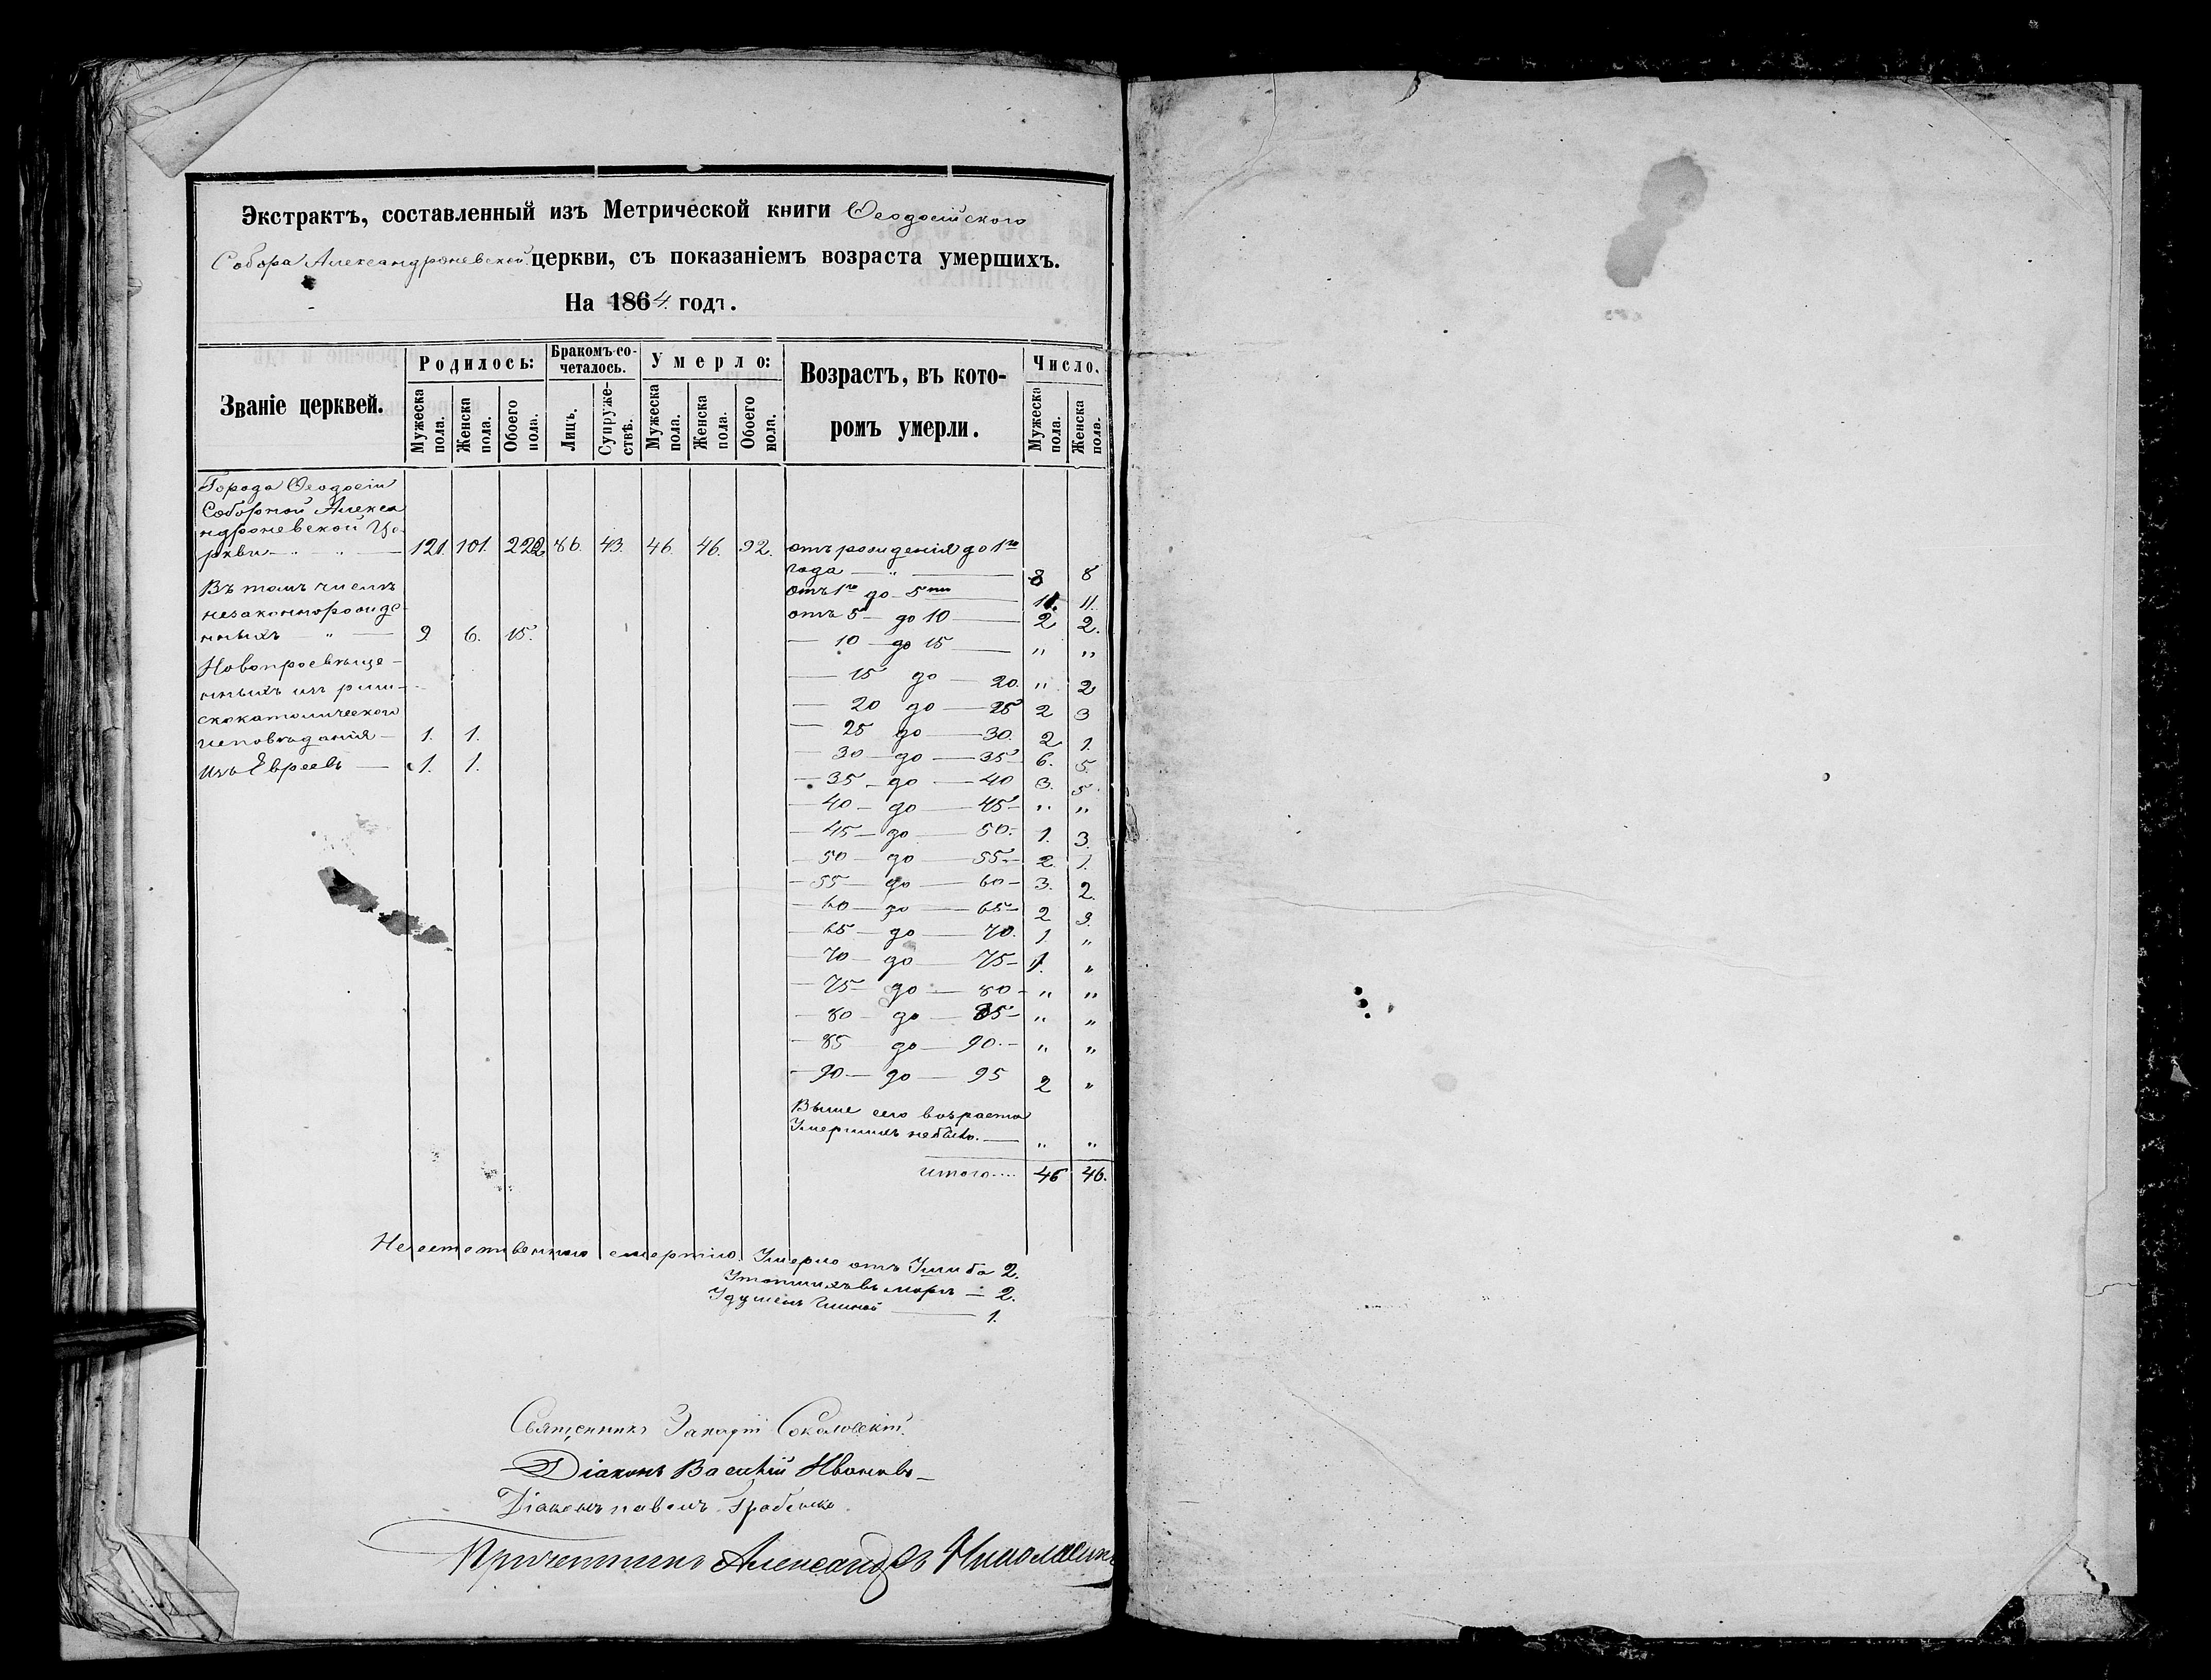 Экстрактъ, составленный изъ Метрической книги Ѳеодосійского
Собора Александроневской церкви, съ показаніемъ возраста умершихъ.
На 1864 годъ.
Званіе церквей.
Родилось:
Бракомъ со-
четалось.
Умерло:
Возрастъ, въ кото-
ромъ умерли.
Число.
Мужеска пола.
Женска пола.
Обоего пола.
Лицъ.
Супруже-
ствъ.
Мужеска пола.
Женска пола.
Обоего пола.
Мужеска пола.
Женска пола.
Города Ѳеодосіи
Соборной Алекса
ндроневской Це-
ркви — " — 121. 101. 222 86. 43. 46. 46. 92.
Въ томъ числѣ
незаконнорожде-
нныхъ — " — 9 6. 15.
Новопросвѣще-
нныхъ изъ рим-
скокатолического
исповѣданія — 1. 1.
Изъ Евреевъ — 1. 1.
отъ рожденія до 1го
года — " — 8 8
Отъ 1го до 5ти 11. 11.
отъ 5 — до 10 — 2 2.
— 10 — до 15 — " "
— 15 до — 20. " 2
— 20 до — 25 2 3
— 25 до — 30. 2 1.
— 30 — до — 35 6. 5.
— 35 — до — 40 3. 5.
— 40 — до — 45 — " "
— 45 — до — 50. 1. 3.
— 50 — до — 55 — 2. 1.
— 55 — до — 60 — 3. 2.
— 60 — до — 65 — 2 3.
— 65 — до — 70. 1 "
— 70 — до — 75 — 1. "
— 75 — до — 80 — " "
— 80 — до — 85 — " "
— 85 до — 90. — " "
— 90 — до — 95 2 "
Выше сего возраста
Умершихъ небыло. — " "
итого.... 46 46.
Неестественною смертію Умерло отъ Ушиба 2.
Утопшихъ въ морѣ — 2.
Удушенъ глиной — 1.
Священникъ Соколовскій.
Діаконъ Василій Ивановъ
Діаконъ павелъ Грабенко.
Причетникъ Александръ